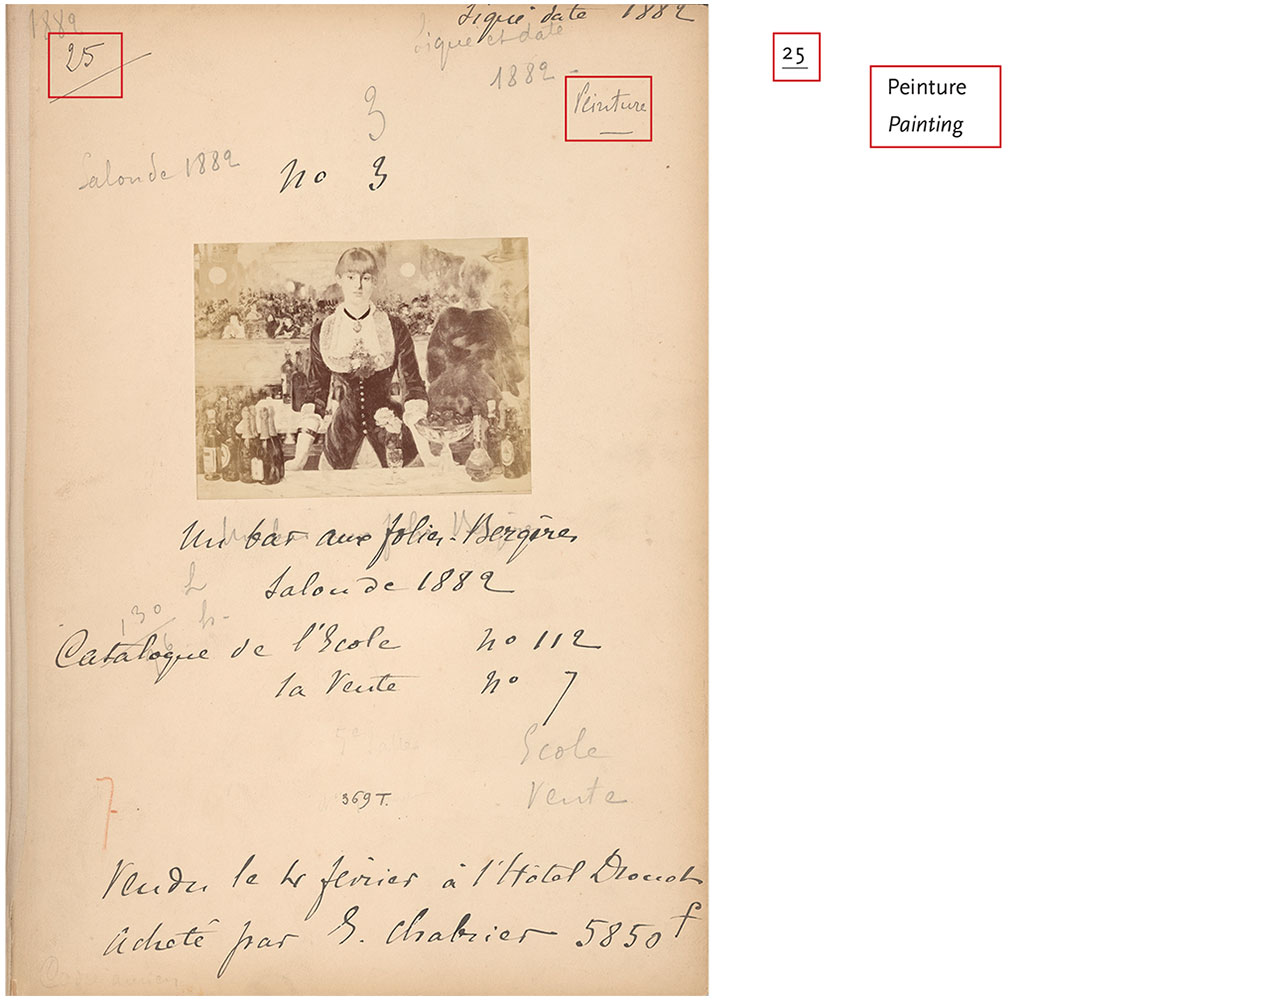 1882
Signé daté 1882
25
Signé et daté
1882
Peinture
3
Salon de 1882
No 3
Un bar aux folies-Bergère
Salon de 1882
L
130
h
Catalogue de l'Ecole No 112
la Vente No 7
5e Salle
Ecole
7
369 T.
Vente
Vendu le 4 février à l'Hôtel Drouot
acheté par E. Chabrier 5850 f
25
Peinture
Painting